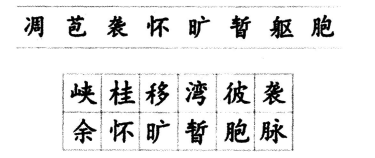 凋 芭 袭 怀 旷 暂 躯 胞
峡 桂 移 湾 彼 袭
余 怀 旷 暂 胞 脉